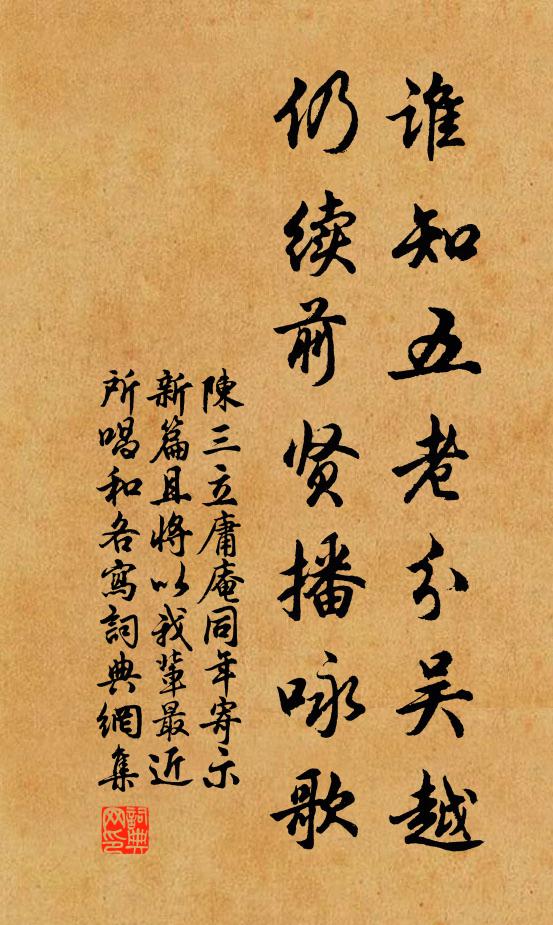 谁知五老分吴越
仍续前贤播咏歌
陳三立庸庵同年寄示
新篇且將以我輩最近
所唱和各寫詞典網集
詞典网印